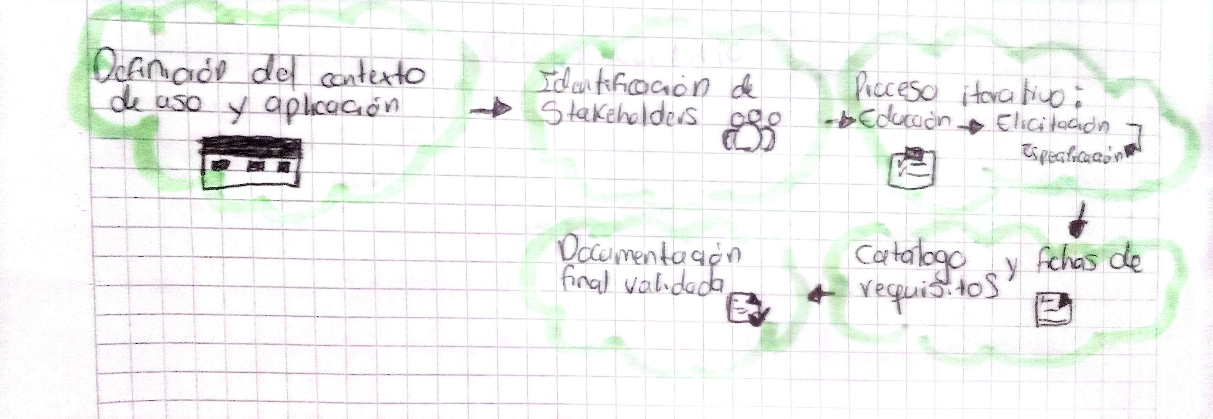 Definición del contexto
de uso y aplicación
Identificación de
Stakeholders
Proceso iterativo:
Educción → Elicitación
Especificación
Catalogo y fichas de
requisitos
Documentación
final validada